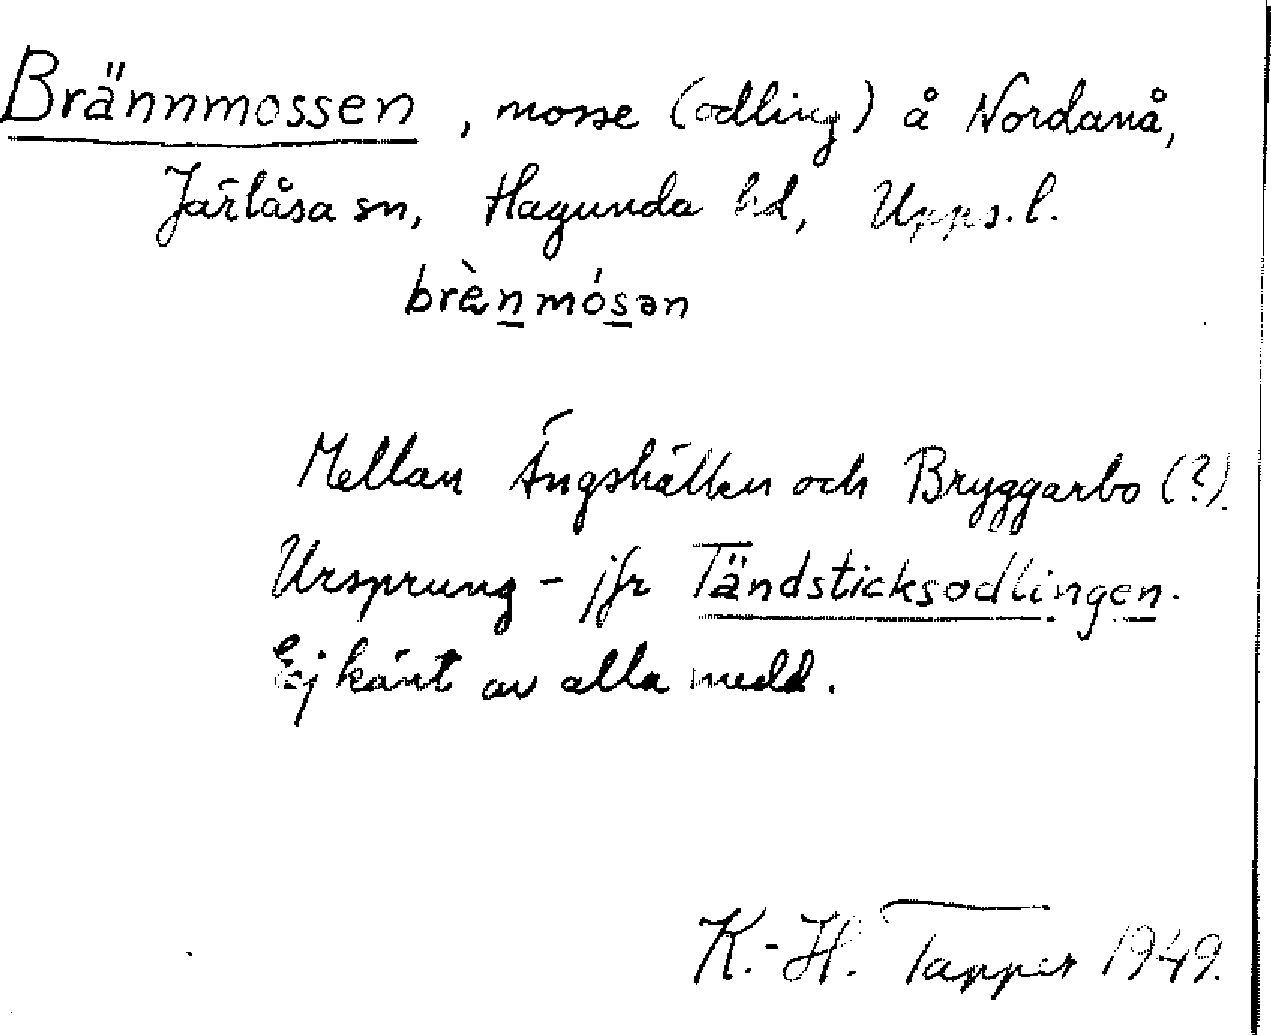 Brännmossen, mosse (odling) å Nordanå,
Järlåsa sn, Hagunda hd, Upps. l.
brènmósən
Mellan Ängshällen och Bryggarbo (?).
Ursprung - jfr Tändsticksodlingen.
Ej känt av alla medd.
K.-H. Tapper 1949.